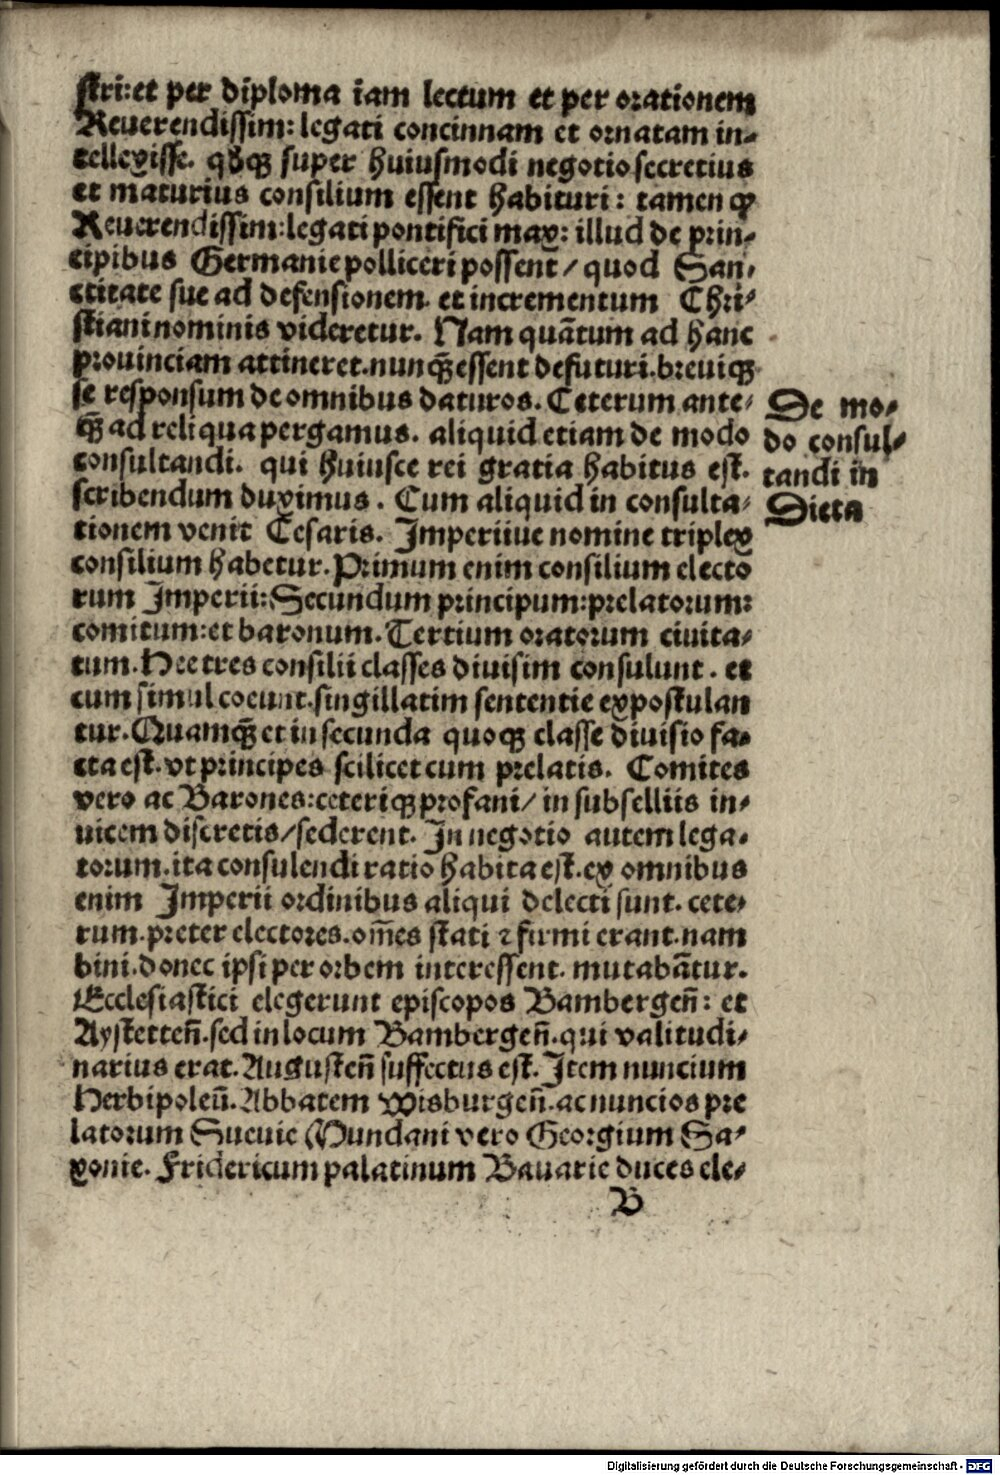 stri: et per diploma iam lectum et per orationem
Reuerendissim: legati concinnam et ornatam in-
tellexisse. qꝫqꝫ super huiusmodi negotio secretius
et maturius consilium essent habituri: tamen ꝙ
Reuerendissim: legati pontifici max: illud de prin-
cipibus Germanie polliceri possent / quod San-
ctitate sue ad defensionem. et incrementum Chri-
stiani nominis videretur. Nam quātum ad hanc
prouinciam attineret. nunqꝫ essent defuturi. breuiqꝫ
se responsum de omnibus daturos. Ceterum ante-
qꝫ ad reliqua pergamus. aliquid etiam de modo
consultandi. qui huiusce rei gratia habitus est.
scribendum duximus. Cum aliquid in consulta-
tionem venit Cesaris. Imperiiue nomine triplex
consilium habetur. Primum enim consilium electo
rum Imperii: Secundum principum: prelatorum:
comitum: et baronum. Tertium oratorum ciuita-
tum. Hee tres consilii classes diuisim consulunt. et
cum simul coeunt. singillatim sententie expostulan
tur. Quamqꝫ et in secunda quoqꝫ classe diuisio fa-
cta est. vt principes scilicet cum prelatis. Comites
vero ac Barones: ceteriqꝫ profani / in subselliis in-
uicem discretis / sederent. In negotio autem lega-
torum. ita consulendi ratio habita est. ex omnibus
enim Imperii ordinibus aliqui delecti sunt. cete-
rum. preter electores. om̄es stati ⁊ firmi erant. nam
bini. donec ipsi per orbem interessent. mutabātur.
Ecclesiastici elegerunt episcopos Bambergen̄: et
Aystetten̄. sed in locum Bambergen̄. qui valitudi-
narius erat. Augusten̄ suffectus est. Item nuncium
Herbipolen̄. Abbatem Wisburgen̄. ac nuncios pre
latorum Sueuie Mundani vero Georgium Sa-
xonie. Fridericum palatinum Bauarie duces ele-
B
De mo-
do consul-
tandi in
Dieta
Digitalisierung gefördert durch die Deutsche Forschungsgemeinschaft - DFG